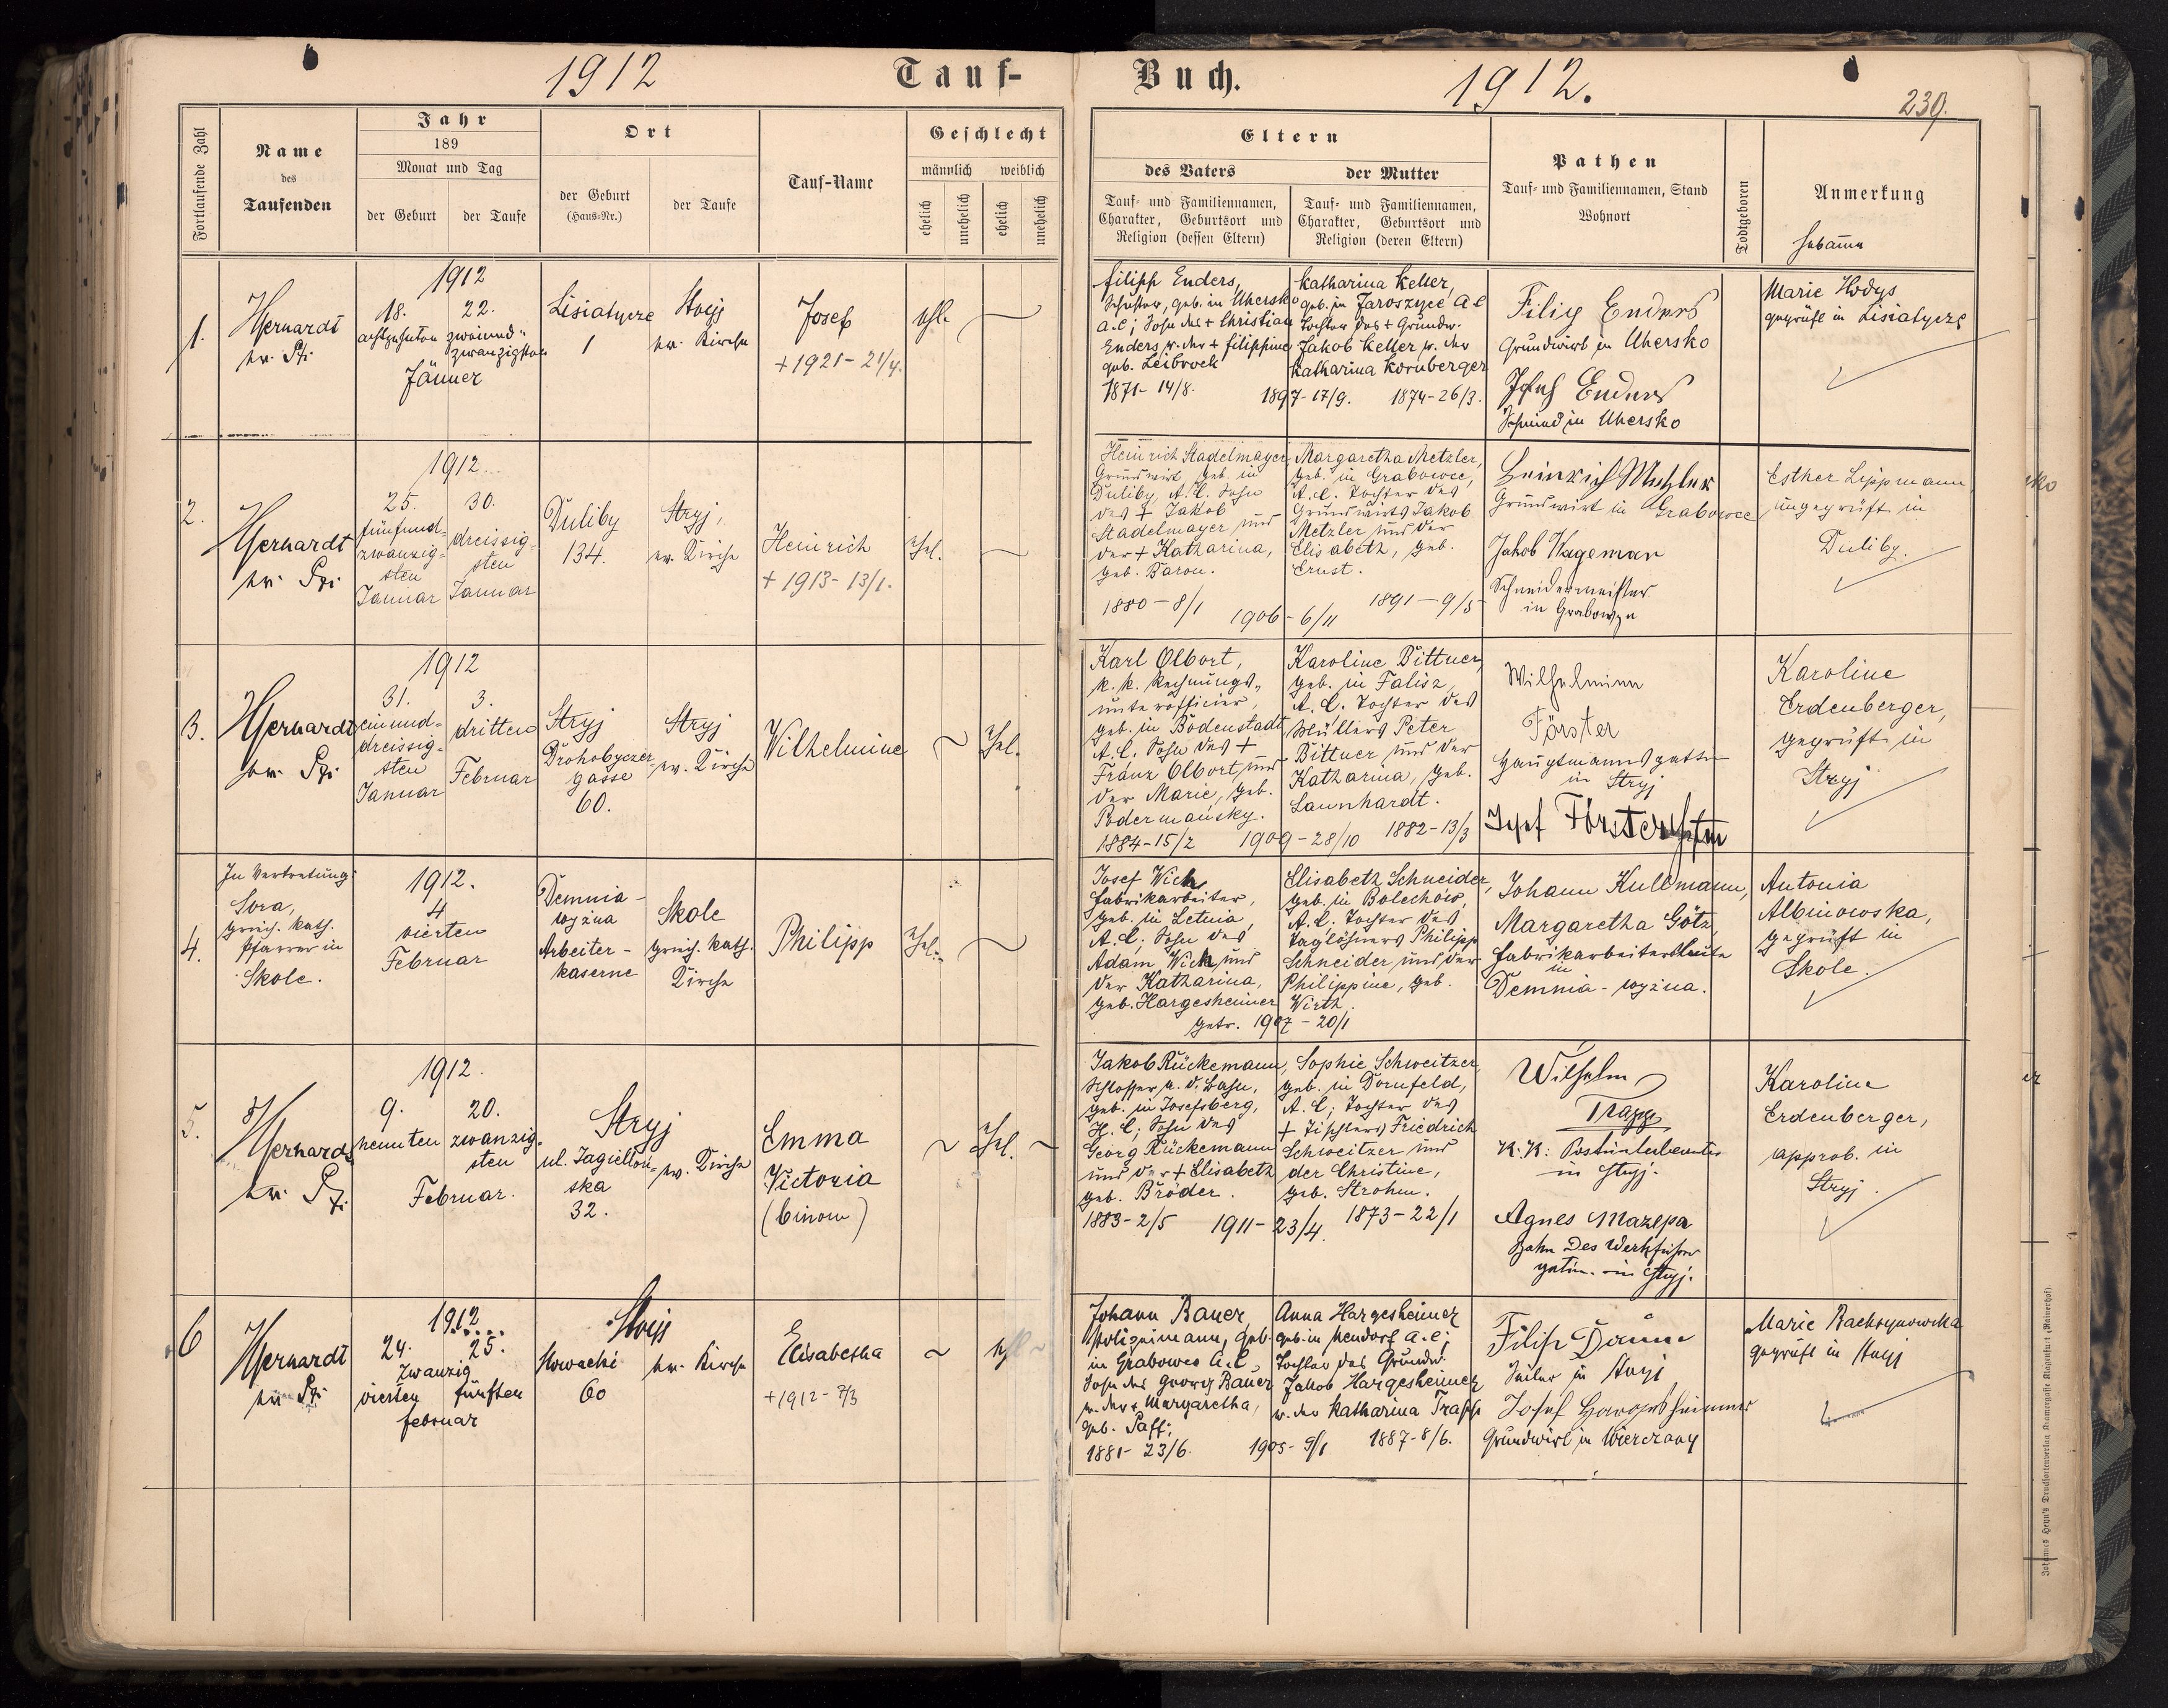 1912
Tauf-
Buch.
1912.
239.
Fortlaufende Zahl
Name
des
Taufenden
Jahr
189
Monat und Tag
der Geburt
der Taufe
Ort
der Geburt
(Haus-Nr.)
der Taufe
Tauf-Name
Geschlecht
männlich
weiblich
ehelich
unehelich
ehelich
unehelich
Eltern
des Vaters
Tauf- und Familiennamen,
Charakter, Geburtsort und
Religion (dessen Eltern)
der Mutter
Tauf- und Familiennamen,
Charakter, Geburtsort und
Religion (deren Eltern)
Pathen
Tauf- und Familiennamen, Stand
Wohnort
Todtgeboren
Anmerkung
Hebamme
1.
1912
18.
achtzehnten
22.
zweiund-
zwanzigsten
Jänner
Lisiatycze
1
Stryj
ev. Kirche
Josef
+ 1921 - 21/4.
ehl.
Filipp Enders,
Schuster, geb. in Uhersko
A.C; Sohn des + Christian
Enders u. der + Filippine
geb. Leibrock
1871 - 14/8.
1897 - 17/9.
Katharina Keller,
geb. in Jaroszyce A C
Tochter des + Grundw.
Jakob Keller u. der
Katharina Kornberger
1874 - 26/3.
Filip Enders
Grundwirt in Uhersko
Josef Enders
Schmied in Uhersko
Marie Hodys
geprüft in Lisiatycze
2.
1912.
25.
fünfund-
zwanzig-
sten
Januar
30.
dreissig-
sten
Januar
Duliby
134.
Stryj,
ev. Kirche
Heinrich
+ 1913 - 13/1.
Ehel.
Heinrich Stadelmayer
Grundwirt, geb. in
Duliby, A.C. Sohn
des + Jakob
Stadelmayer und
der + Katharina,
geb. Baron.
1880 - 8/1
1906 - 6/11
Margaretha Metzler,
geb. in Grabowce,
A.C. Tochter des
Grundwirts Jakob
Metzler und der
Elisabeth, geb.
Ernst.
1891 - 9/5
Heinrich Metzler
Grundwirt in Grabowce
Jakob Wageman
Schneidermeister
in Grabowce
Esther Lippmann,
ungeprüft in
Duliby.
3.
1912
31.
einund-
dreissig-
sten
Januar
3.
dritten
Februar
Stryj
Drohobyczer-
gasse
60.
Stryj
ev. Kirche
Wilhelmine
Ehel.
Karl Olbort,
k. k. Rechnungs-
unterofficier,
geb. in Bodenstadt
A.C. Sohn des +
Franz Olbort und
der Marie, geb.
Podermańsky.
1884 - 15/2
1909 - 28/10
Karoline Bittner,
geb. in Falisz,
A. C. Tochter des
Müllers Peter
Bittner und der
Katharina, geb.
Launhardt.
1882 - 13/3
Wilhelmine
Förster
Hauptmannsgattin
in Stryj
Josef Förster
Karoline
Erdenberger,
geprüft in
Stryj
4.
In Vertretung:
Sora,
griech. kath.
Pfarrer in
Skole.
1912.
4
vierten
Februar
Demnia-
wyżna
Arbeiter-
kaserne
Skole
griech. kath.
Kirche
Philipp
Ehel.
Josef Wick,
Fabrikarbeiter,
geb. in Letnia,
A. C; Sohn des
Adam Wick und
der Katharina,
geb. Hargesheimer
getr. 1907 - 20/1
Elisabeth Schneider,
geb. in Bolechów,
A. C. Tochter des
Taglöhners Philipp
Schneider und der
Philippine, geb.
Wirth.
Johann Kullmann,
Margaretha Götz,
Fabrikarbeitersleute
in
Demnia-wyżna.
Antonia
Albinowska,
geprüft in
Skole.
5.
1912.
9.
neunten
20.
zwanzig-
sten
Februar.
Stryj
ul. Jagielloń-
ska
32.
ev. Kirche
Emma
Victoria
(binom)
Ehel.
Jakob Rückemann,
Schlosser a. d. Bahn,
geb. in Josefsberg,
H. C; Sohn des
Georg Rückemann
und der + Elisabeth
geb. Bröder.
1883 - 2/5
1911 - 23/4.
Sophie Schweitzer,
geb. in Dornfeld,
A. C; Tochter des
+ Tischlers Friedrich
Schweitzer und
der Christine,
geb. Strohm.
1873 - 22/1
Wilhelm
Trapp
K. K. Postunterbeamter
in Stryj.
Agnes Mazepa
Bahn Des Werkführer
gatin. in Stryj.
Karoline
Erdenberger,
approb. in
Stryj.
6
1912
24.
25.
Zwanzig
vierten
fünften
Februar
Stryj
Slowacki
60
ev. Kirche
Elisabetha
+ 1912 - 7/3
Johann Bauer,
Polizeimann, geb.
in Grabowce A.C,
Sohn des Georg Bauer
u. der + Margaretha,
geb. Paff;
1881 - 23/6.
1905 - 9/1
Anna Hargesheimer
geb. in Neudorf A.C;
Tochter des Grundw.
Jakob Hargesheimer
u. der Katharina Trapp
1887 - 8/6.
Filip
in Stryj
Josef Hargesheimer
Grundwirt in Wierczany
Marie Rachzynowska
geprüft in Stryj
Johannes Heyn's Drucksortenverlag Kramergasse Klagenfurt (Rainerhof).